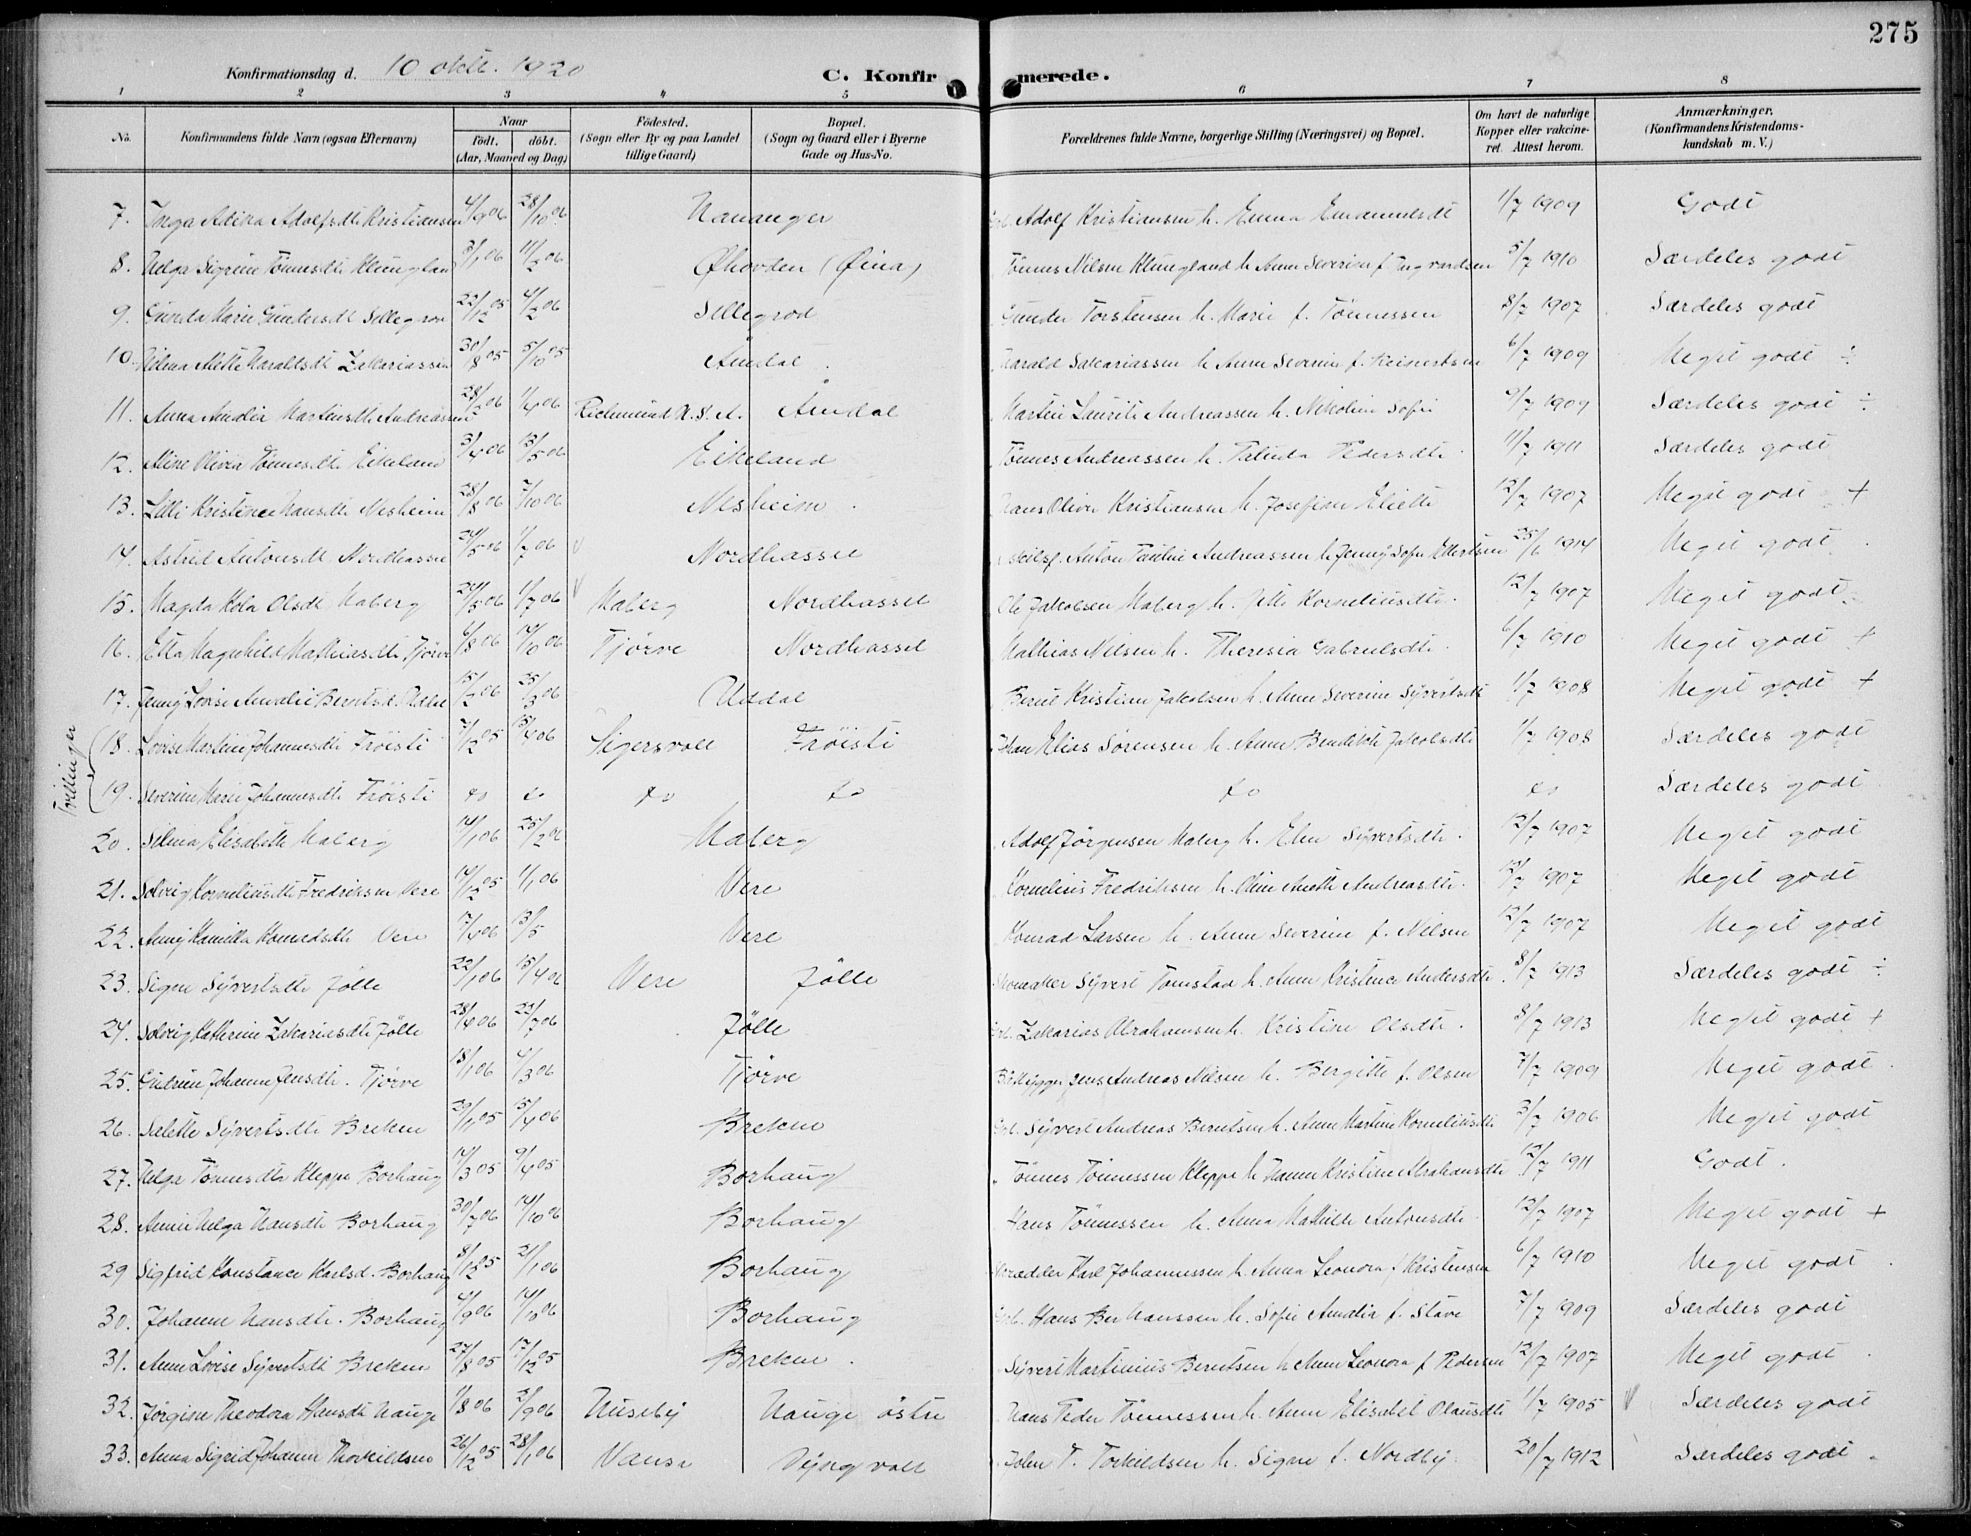 275
Konfirmationsdag d. 10 okt. 1920 C. Konfirmerede.
1 2 3 4 5 6 7 8
No. Konfirmandens fulde Navn (ogsaa Efternavn) Naar Født. døbt. (Aar, Maaned og Dag) Fødested. (Sogn eller By og paa Landet tillige Gaard) Bopæl. (Sogn og Gaard eller i Byerne Gade og Hus-No. Forældrenes fulde Navne, borgerlige Stilling (Næringsvei) og Bopæl. Om havt de naturlige Kopper eller vakcineret. Attest herom. Anmærkninger. (Konfirmandens Kristendomskundskab m. V.)
7. Inga Adolfsdt Kristiansen 4/9 06 28/10 06 Nananger Adolf Kristiansen h. Emma Emanuelsdt 1/7 1909 Godt
8. Helga Sigrine Tönnesdt. Klungland 3/1 06 11/2 06 Øhovden (Øina) Tönnes Nilsen Klungland h. Anne Severine f. Ingvardsen 5/7 1910 Særdeles godt
9. Gunda Marie Gundersdt Sellegrod 22/12 05 4/2 06 Sellegrod Gunder Torstensen h. Marie f. Tönnessen 8/7 1907 Særdeles godt
10. Mette Haraldsdt Zakariassen 30/8 05 5/10 05 Åmdal Harald Sakariassen h. Anne Severine f. Reinertsen 6/7 1909 Meget godt ÷
11. Anna Amalie Martinsdt. Andreassen 28/2 06 1/4 06 Richmund N. S. A. Åmdal Martin Laurits Andreassen h. Nikoline Sofie 9/7 1909 Særdeles godt ÷
12. Aline Olivia Tönnesdt. Eikeland 3/4 06 13/5 06 Eikeland Tönnes Andreassen h. Pedersdt. 11/7 1911 Særdeles godt
13. Lilli Kristine Hansdt. Nesheim 28/8 06 7/10 06 Nesheim Hans Oliver Kristiansen h. Josefine 12/7 1907 Meget godt +
14. Astrid Antonsdt Nordhassel 24/5 06 1/7 06 Nordhassel Anton Andreassen h. Jenny Sofie Ellertsen 25/6 1914 Meget godt
15. Magda Kola Olsdt Maberg 24/5 06 1/7 06 Maberg Nordhassel Ole Jakobsen Maberg h. Jette Korneliusdt. 12/7 1907 Meget godt
16. Etta Magnhild Mathiasdt. Tjörve 6/8 06 14/10 06 Tjörve Nordhassel Mathias Nilsen h. Theresia Gabrielsdt. 6/7 1910 Meget godt +
17. Jenny Lovise Amalie Berntsd. Uddal 15/2 06 25/3 06 Uddal Bernt Kristian Jakobsen h. Anne Severine Syvertsdt 1/7 1908 Meget godt +
Tvillinger
18. Lovise Martine Johannesdt. Fröisti 7/12 05 15/4 06 Sigersvoll Fröisti Johan Elias Sørensen h. Anne Bendikte Jakobsdt 1/7 1908 Særdeles godt
19. Severine Marie Johannesdt. Fröisti do do do do do do Særdeles godt
20. Selma Elisabeth Maberg 14/1 06 25/2 06 Maberg Adolf Jörgensen Maberg h. Elen Syvertsdt. 12/7 1907 Meget godt
21. Solveig Korneliusdt. Fredriksen Vere 14/12 05 1/1 06 Vere Kornelius Fredriksen h. Andreasdt. 12/7 1907 Meget godt
22. Anny Kamilla Konradsdt. Vere 17/4 06 13/5 Vere Konrad Larsen h. Anne Severine f. Nilsen 12/7 1907 Meget godt
23. Signe Syvertsdt. Jölle 22/1 06 15/4 06 Vere Jölle Skomaker Syvert Tomstad h. Anne Kristence Andersdt. 8/7 1913 Særdeles godt ÷
24. Solveig Kathrine Zakariasdt. Jölle 28/4 06 22/7 06 Jölle Zakarias Abrahamsen h. Kristine Olsdt. 8/7 1913 Meget godt +
25. Gudrun Johanne Jensdt. Tjörve 18/1 06 4/3 06 Tjörve Båtbygger Jens Andreas Nilsen h. Bergitte f. Olsen 7/7 1909 Meget godt
26. Salette Syvertsdt. Breken 29/1 05 15/4 06 Brekne Syvert Andreas Berntsen h. Anne Martine Korneliusdt. 3/7 1906 Meget godt
27. Helga Tönnesdt. Kleppe Borhaug 14/3 05 9/4 05 Borhaug Tönnes Tönnessen Kleppe h. Hanne Kristine Abrahamsdt 12/7 1911 Godt.
28. Annie Helga Hansdt. Borhaug 30/7 06 14/10 06 Borhaug Hans Tönnessen h. Anna Mathilde Antonsdt. 12/7 1907 Meget godt +
29 Sigfrid Konstance Karlsd. Borhaug 8/12 05 21/1 06 Borhaug Skrædder Karl Johannessen h. Anna Leonora f. Kristensen 6/7 1910 Meget godt
30. Johanne Hansdt. Borhaug 4/9 06 14/10 06 Borhaug Hans Ber Hanssen h. Sofie Amalia f. Stave 7/7 1909 Særdeles godt
31. Anne Lovise Syvertsdt Breken 27/8 05 17/12 05 Brekne. Syvert Martinius Berntsen h. Anne Leonora f. Pedersen 12/7 1907 Meget godt
32. Jørgine Theodora Hansdt Hauge 1/8 06 2/9 06 Huseby Hauge östre Hans Peder Tönnessen h. Anne Elisabet Olausdt 1/7 1905 Særdeles godt
33. Anna Sigrid Johanne Thorkildsen 26/12 05 28/1 06 Vanse Dyngvoll John T. Torkildsen h. Signe f. Nordby. 20/7 1912 Særdeles godt